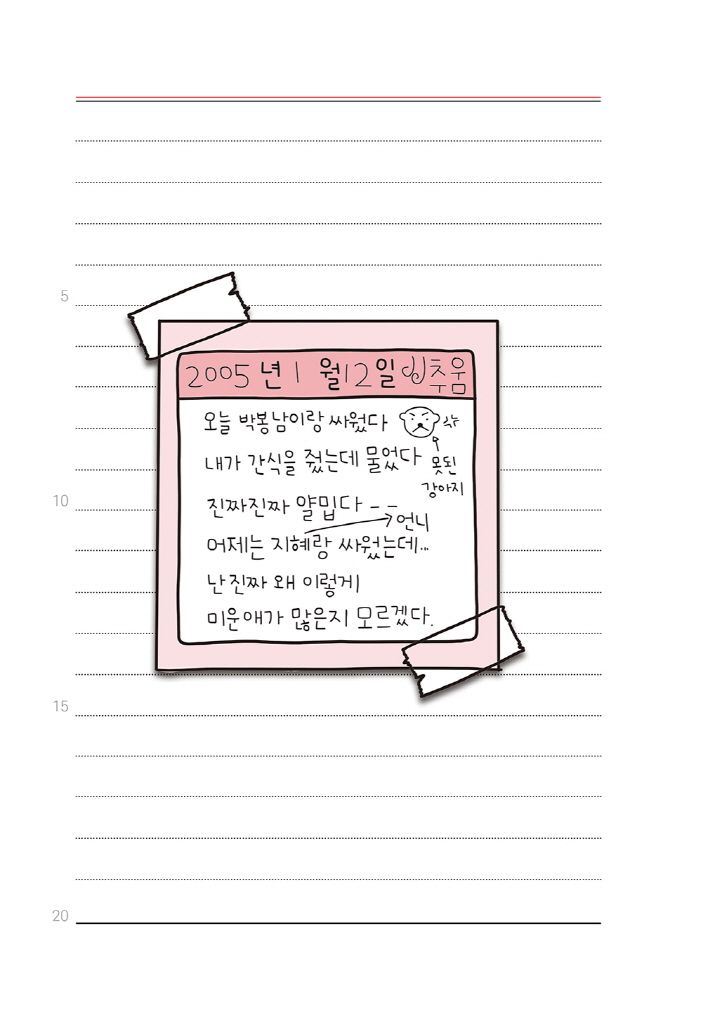 5
2005년 1월 12일 추움
오늘 박봉남이랑 싸웠다
내가 간식을 줬는데 물었다
못된
강아지
10
진짜진짜 얄밉다 - -
언니
어제는 지혜랑 싸웠는데...
난 진짜 왜 이렇게
미운애가 많은지 모르겠다.
15
20